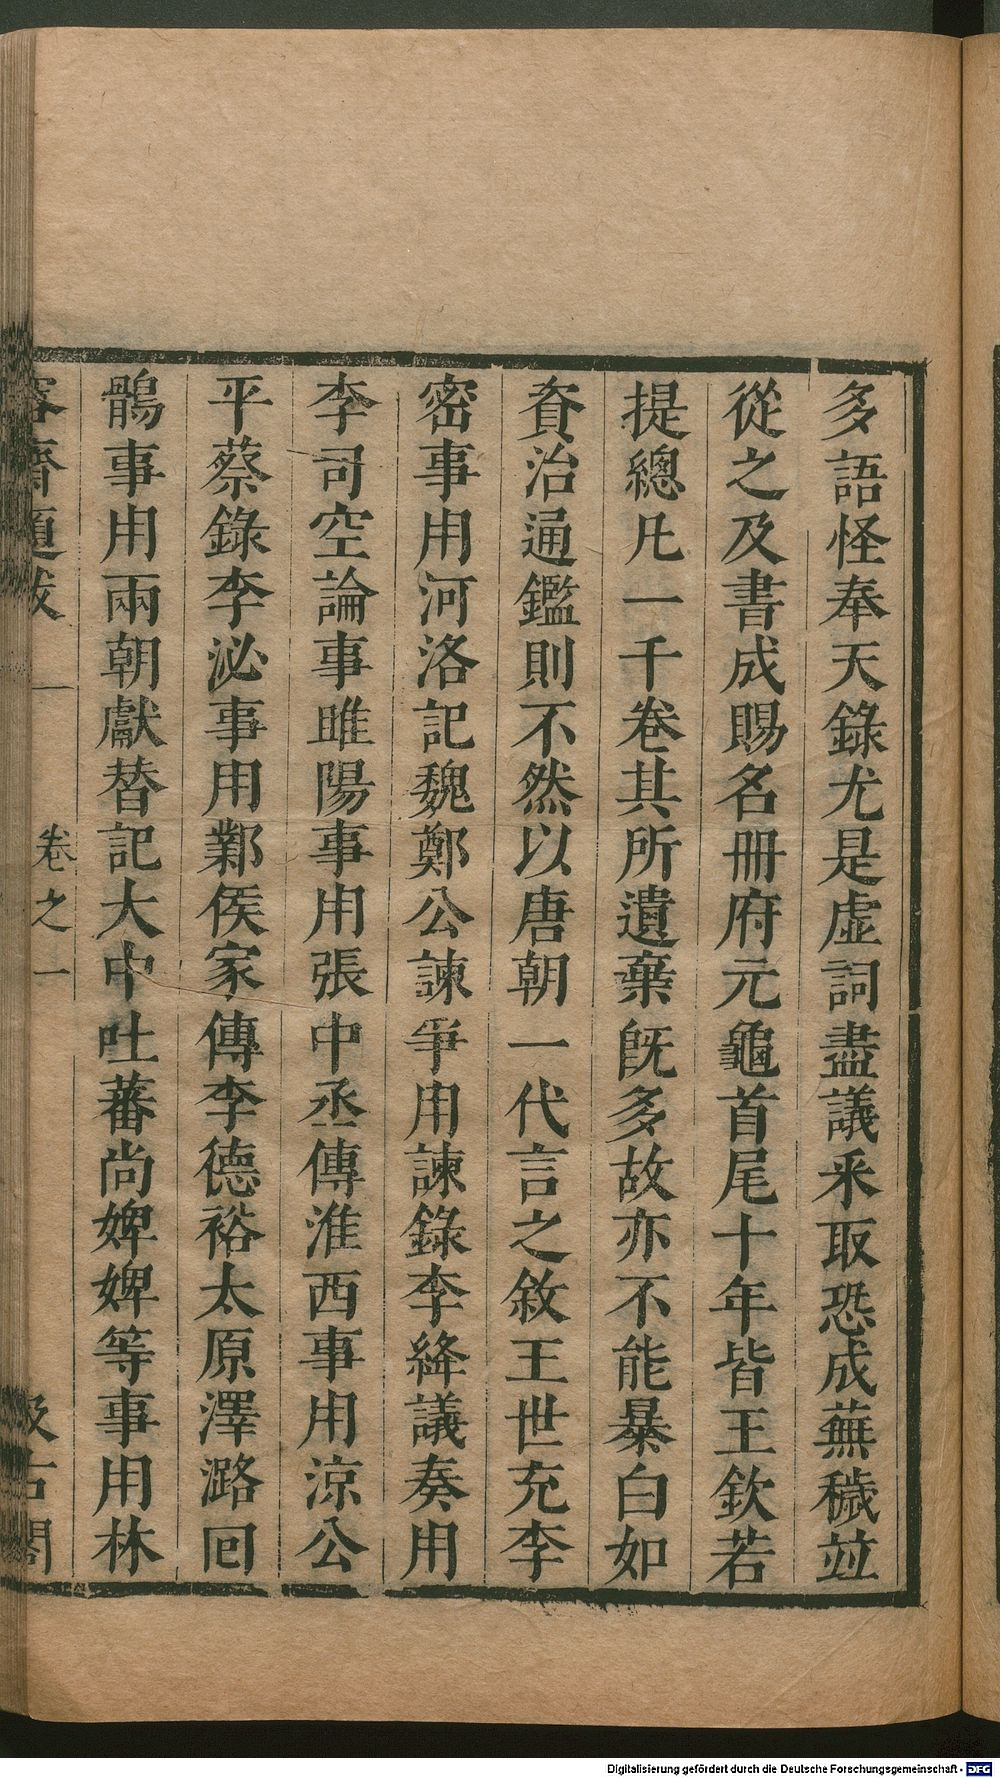 多語怪奉天錄尤是虛詞盡議釆取恐成蕪穢竝
從之及書成賜名冊府元龜首尾十年皆王欽若
提總凡一千卷其所遺棄旣多故亦不能暴白如
資治通鑑則不然以唐朝一代言之敘王世充李
密事用河洛記魏鄭公諫爭用諫錄李絳議奏用
李司空論事睢陽事用張中丞傳淮西事用涼公
平蔡錄李泌事用鄴侯家傳李德裕太原澤潞回
鶻事用兩朝獻替記大中吐蕃尚婢婢等事用林
容齋題跋 卷之一 汲古閣
Digitalisierung gefördert durch die Deutsche Forschungsgemeinschaft - DFG